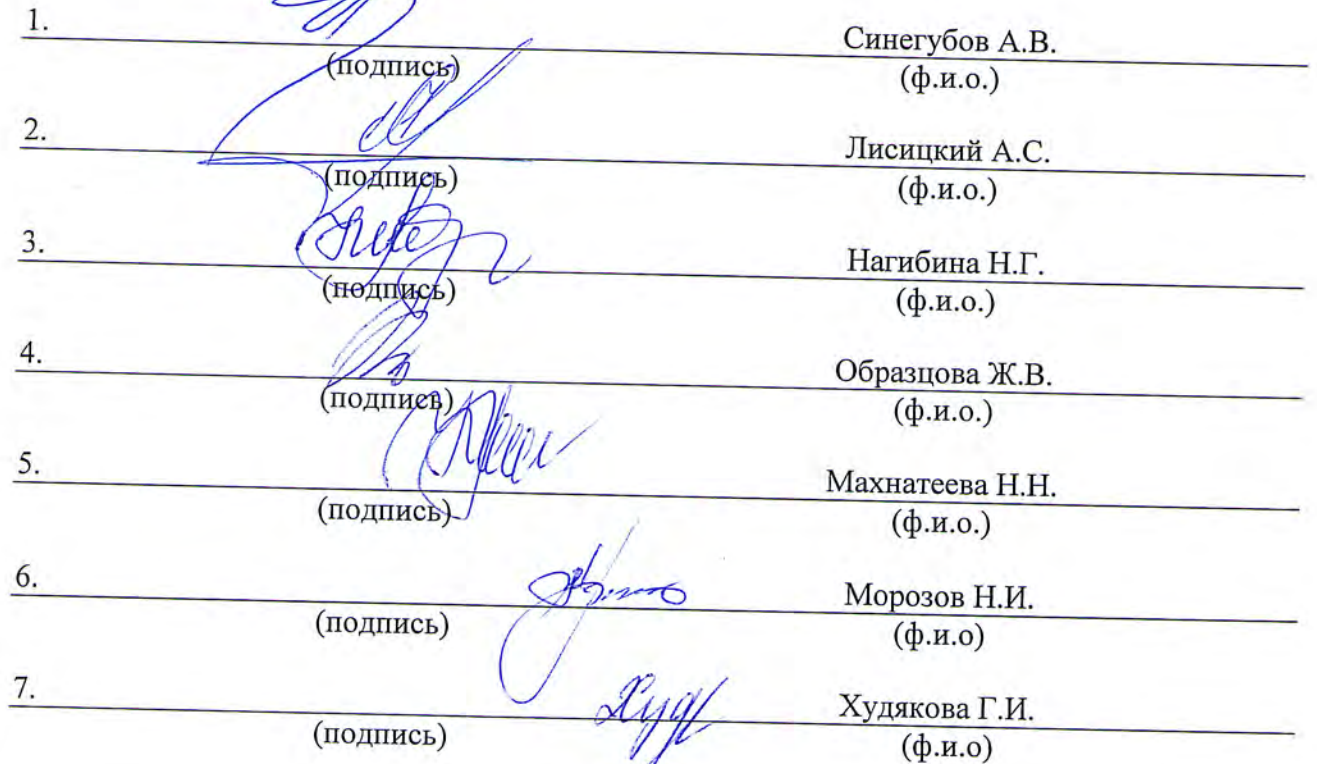 1. Синегубов А.В.
(подпись) (ф.и.о.)
2. Лисицкий А.С.
(подпись) (ф.и.о.)
3. Нагибина Н.Г.
(подпись) (ф.и.о.)
4. Образцова Ж.В.
(подпись) (ф.и.о.)
5. Махнатеева Н.Н.
(подпись) (ф.и.о.)
6. Морозов Н.И.
(подпись) (ф.и.о)
7. Худякова Г.И.
(подпись) (ф.и.о)